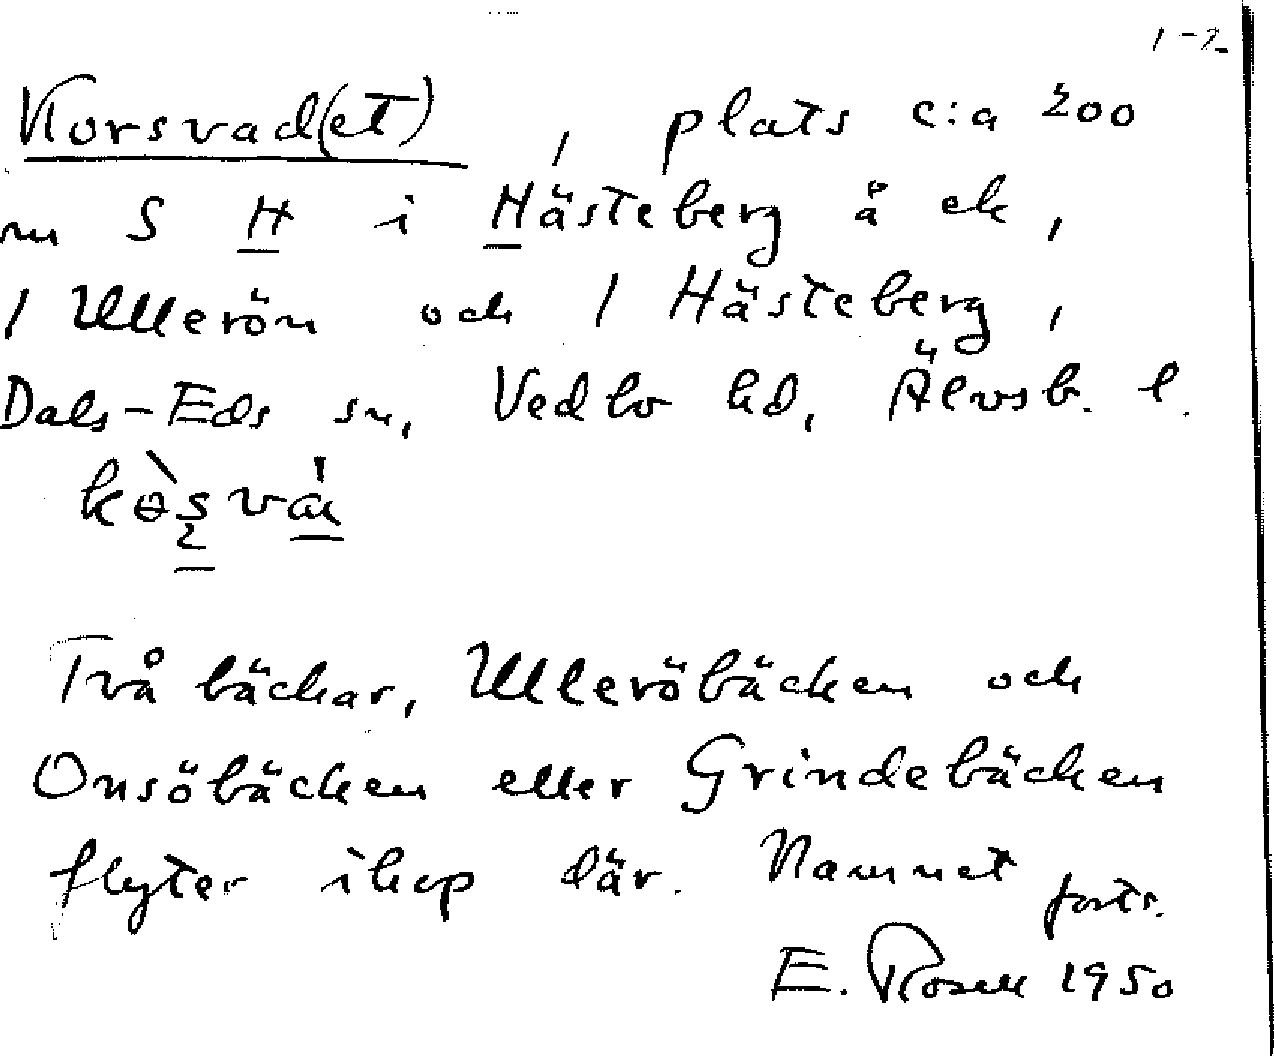 1-2
Korsvad(et) , plats c:a 200
m S H i Hästeberg å ek,
1 Ullerön och 1 Hästeberg,
Dals-Eds sn, Vedbo hd, Älvsb. l.
Två bäckar, Ulleröbäcken och
Onsöbäcken eller Grindebäcken
flyter ihop där. Namnet forts.
E. Rosell 1950